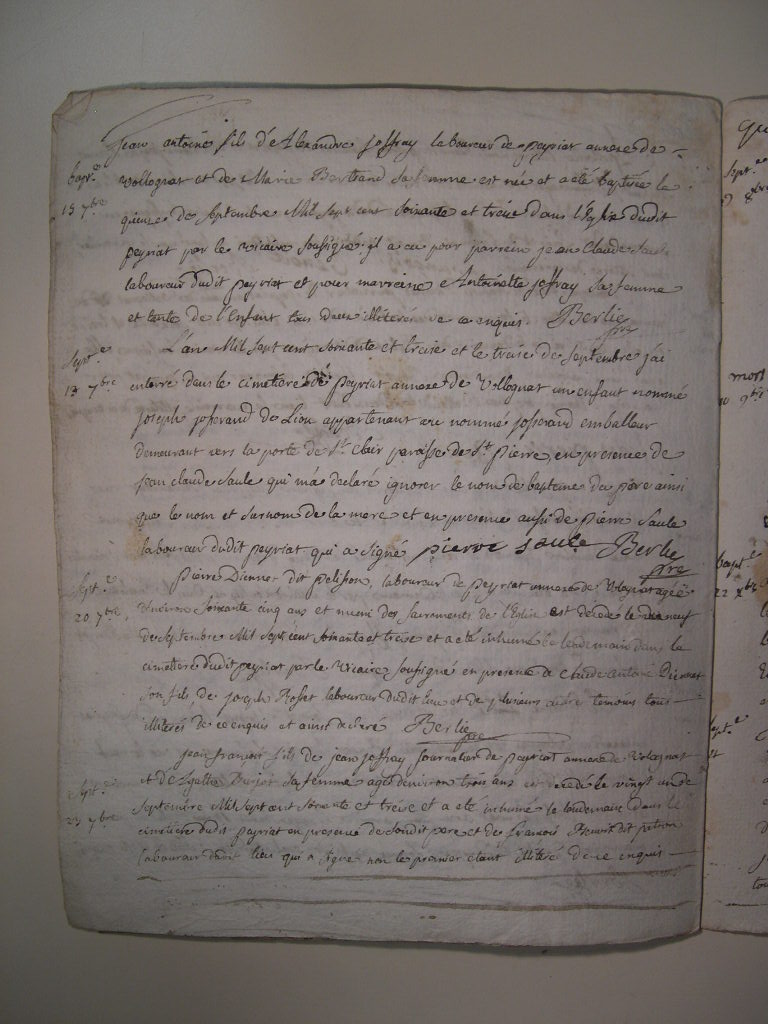 Jean antoine fils d'e Alexandre joffray laboureur de peyriat annexe de
bapt.e
15 7bre
vollognat et de Marie Bertrand sa femme est née et a été baptisée le
quinze de septembre Mil sept cent soixante et treise dans l'Eglise dudit
peyriat par le vicaire soussigné. il a eu pour parrein jean Claude Saule
laboureur dudit peyriat et pour marreine Antoinette joffray sa femme
et tante de l'Enfant tous deux illitérés de ce enquis. Berlie pre
Sept.e
13 7bre
L'an Mil sept cent soixante et treise et le treise de septembre j'ai
enterré dans le cimetiere de peyriat annexe de Vollognat un enfant nommé
joseph josserand de Lion appartenant au nommé josserand emballeur
demeurant vers la porte de St. Clair paroisse de St. pierre, en presence de
jean claude Saule qui m'a declaré ignorer le nom de bapteme du pere ainsi
que le nom et surnom de la mere et en presence aussi de Pierre Saule
laboureur dudit peyriat qui a signé pierre saule Berlie pre
Sept.e
20 7bre
Pierre dit pelisson, laboureur de peyriat annexe de agé
d'environ soixante cinq ans et muni des sacrements de l'Eglise est decedé le dix neuf
de septembre Mil sept cent soixante et treise et a été inhumé le lendemain dans le
cimetiere dudit peyriat par le Vicaire soussigné en presence de claude antoine
son fils, de joseph Rosset laboureur dudit lieu et de plusieurs autre temoins tous
illiterés de ce enquis et ainsi declaré Berlie pre
Sept.e
23 7bre
jean francois fils de jean joffray journalier de peyriat annexe de
et de sa femme agé d'environ trois ans est decedé le vingt un de
septembre Mil sept cent soixante et treise et a été inhumé le lendemain dans le
cimetiere dudit peyriat en presence de sondit pere et de francois Benoit dit
laboureur dudit lieu qui a signé non le premier etant illiteré de ce enquis